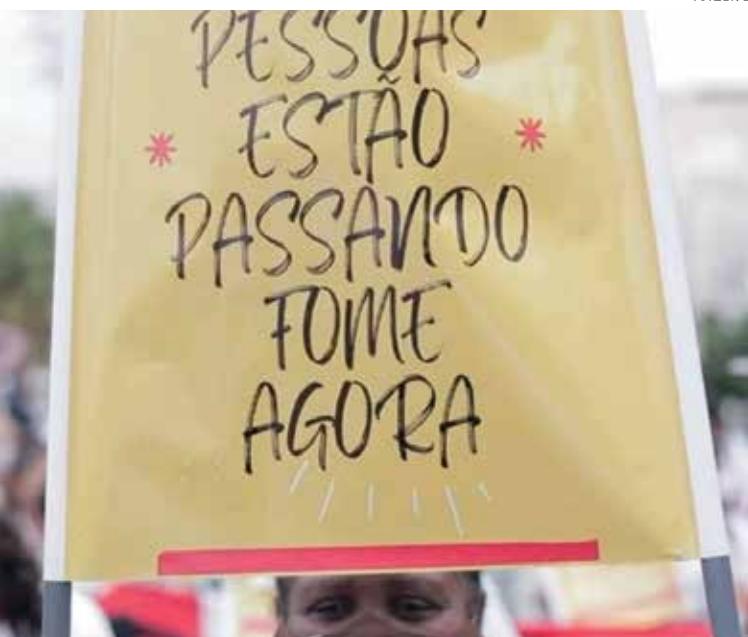 PESSOAS
ESTÃO
PASSANDO
FOME
AGORA